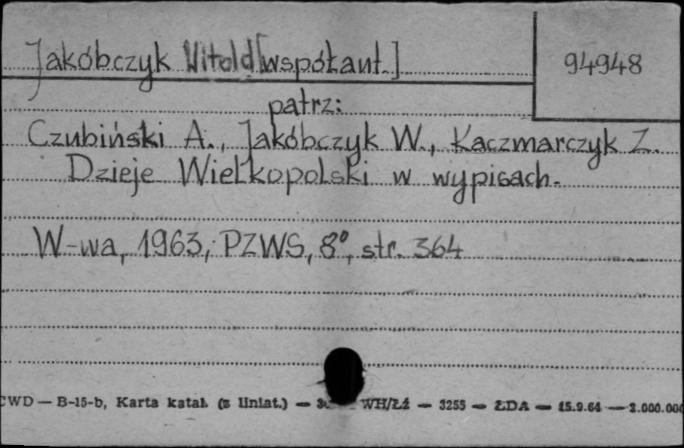 Jakóbczyk Witold [współaut.]
94948
patrz:
Czubiński A., Jakóbczyk W., Kaczmarczyk Z.
Dzieje Wielkopolski w wypisach.
W-wa, 1963, PZWS, 8°, str. 364
CWD — B-15-b, Karta katal. (z liniat.) — WH/Łź — 3255 — ŁDA — 15.9.64 — 2.000.000